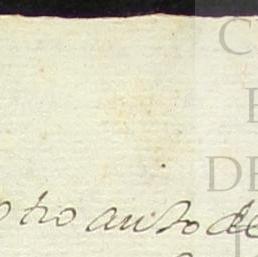 C
E
DE
otro auto de